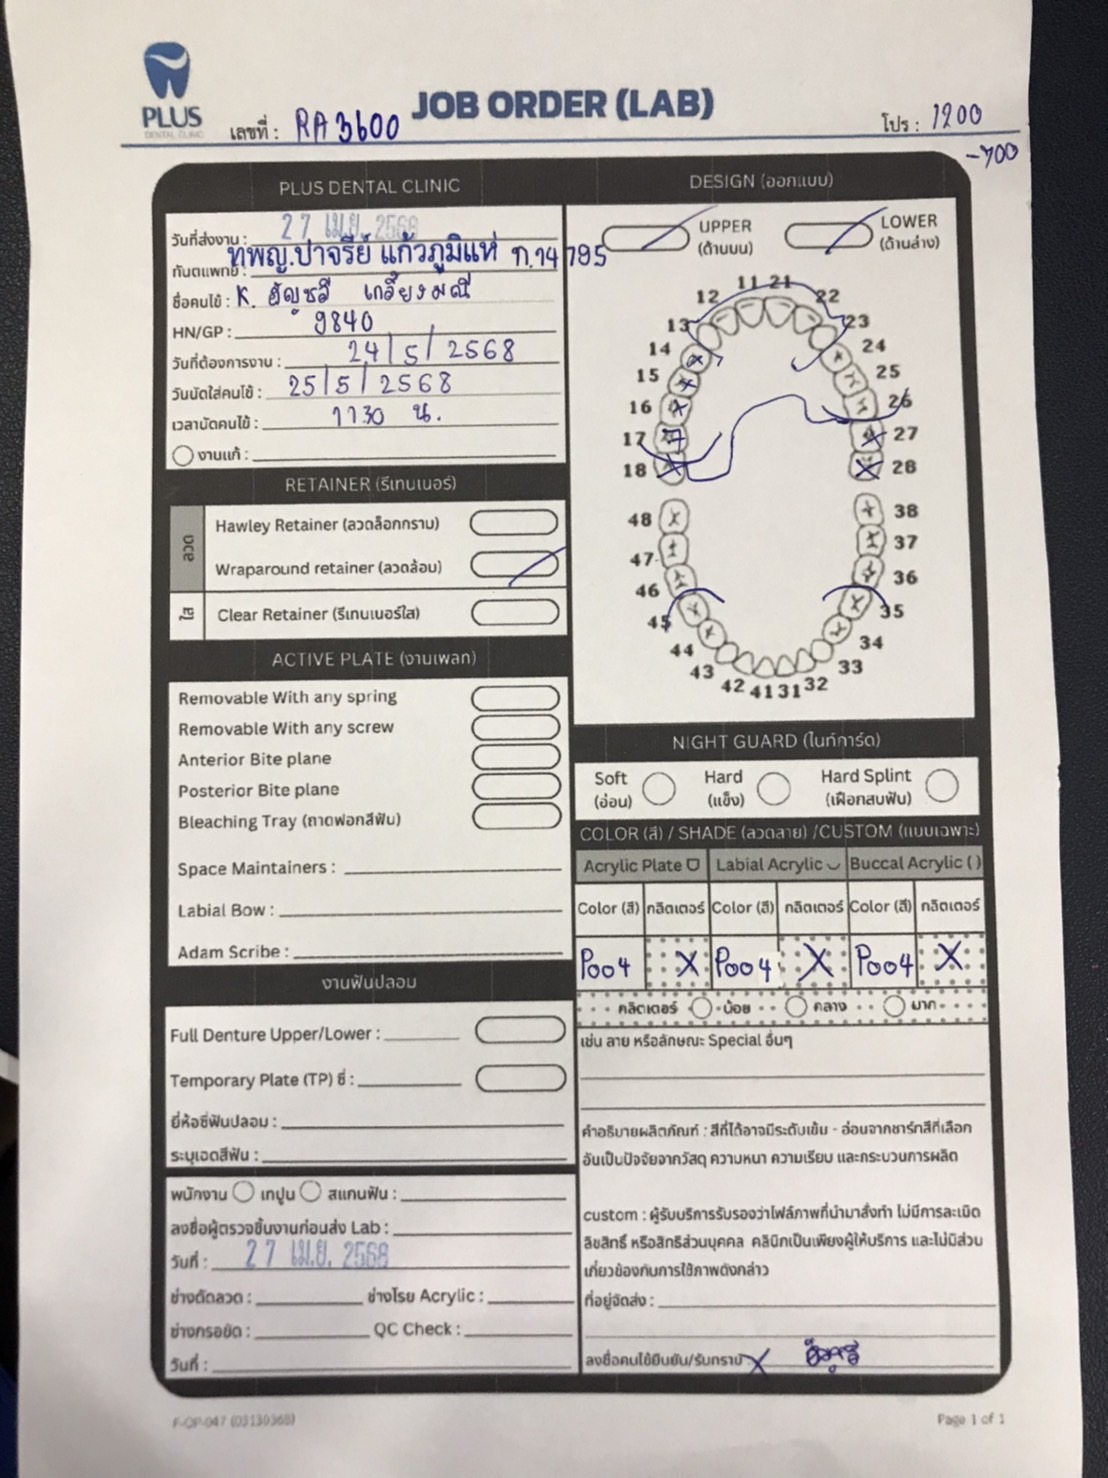 PLUS
DENTAL CLINIC
JOB ORDER (LAB)
เลขที่ : RA 3600
โปร : 1200
-700
PLUS DENTAL CLINIC
วันที่ส่งงาน : 27 เม.ย. 2568
ทันตแพทย์ : ทพญ.ปาจรีย์ แก้วภูมิแห่ ท.14785
ชื่อคนไข้ : K. ธัญชลี
HN/GP : 9840
วันที่ต้องการงาน : 24/5/2568
วันนัดใส่คนไข้ : 25/5/2568
เวลานัดคนไข้ : 1130 น.
งานแก้ :
RETAINER (รีเทนเนอร์)
ลวด
Hawley Retainer (ลวดล็อกกราม)
Wraparound retainer (ลวดล้อม)
ใส
Clear Retainer (รีเทนเนอร์ใส)
ACTIVE PLATE (งานเพลท)
Removable With any spring
Removable With any screw
Anterior Bite plane
Posterior Bite plane
Bleaching Tray (ถาดฟอกสีฟัน)
Space Maintainers :
Labial Bow :
Adam Scribe :
งานฟันปลอม
Full Denture Upper/Lower :
Temporary Plate (TP) ซี่ :
ยี่ห้อซี่ฟันปลอม :
ระบุเฉดสีฟัน :
พนักงาน เทปูน สแกนฟัน :
ลงชื่อผู้ตรวจชิ้นงานก่อนส่ง Lab :
วันที่ : 27 เม.ย. 2568
ช่างดัดลวด : ช่างโรย Acrylic :
ช่างกรอขัด : QC Check :
วันที่ :
DESIGN (ออกแบบ)
UPPER
(ด้านบน)
LOWER
(ด้านล่าง)
11 21
12 22
13 23
14 24
15 25
16 26
17 27
18 28
48 38
47 37
46 36
45 35
44 34
43 33
42 41 31 32
NIGHT GUARD (ไนท์การ์ด)
Soft
(อ่อน)
Hard
(แข็ง)
Hard Splint
(เฝือกสบฟัน)
COLOR (สี) / SHADE (ลวดลาย) /CUSTOM (แบบเฉพาะ)
Acrylic Plate Labial Acrylic Buccal Acrylic ( )
Color (สี) กลิตเตอร์ Color (สี) กลิตเตอร์ Color (สี) กลิตเตอร์
P004 X P004 X P004 X
กลิตเตอร์ น้อย กลาง มาก
เช่น ลาย หรือลักษณะ Special อื่นๆ
คำอธิบายผลิตภัณฑ์ : สีที่ได้อาจมีระดับเข้ม - อ่อนจากชาร์ทสีที่เลือก
อันเป็นปัจจัยจากวัสดุ ความหนา ความเรียบ และกระบวนการผลิต
custom : ผู้รับบริการรับรองว่าไฟล์ภาพที่นำมาสั่งทำ ไม่มีการละเมิด
ลิขสิทธิ์ หรือสิทธิส่วนบุคคล คลินิกเป็นเพียงผู้ให้บริการ และไม่มีส่วน
เกี่ยวข้องกับการใช้ภาพดังกล่าว
ที่อยู่จัดส่ง :
ลงชื่อคนไข้ยืนยัน/รับทราบ X
F-OP-047 (03130368)
Page 1 of 1